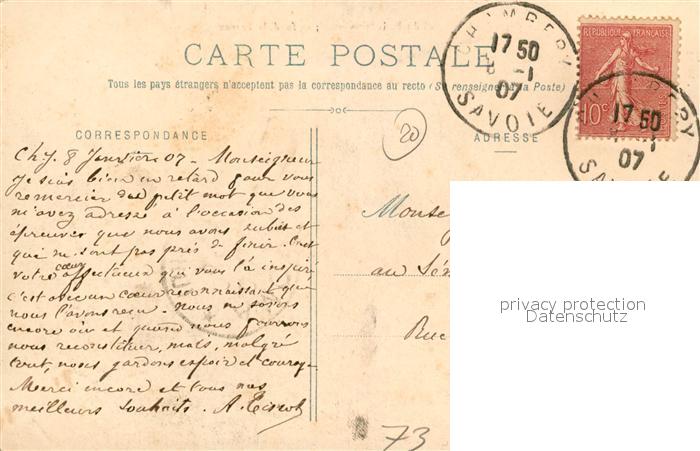 CARTE POSTALE
Tous les pays étrangers n'acceptent pas la correspondance au recto (Se renseigner à la Poste)
CORRESPONDANCE
ADRESSE
CHAMBERY
17 50
8 -1
07
SAVOIE
REPUBLIQUE FRANÇAISE
10c
17 50
07
20
Ch/. 8 Janvier 07 - Monseigneur
Je suis bien en retard pour vous
remercier du petit mot que vous
m'avez adressé à l'occasion des
épreuves que nous avons subies et
qui ne sont pas près de finir. C'est
votre cœur affectueux qui vous l'a inspiré
c'est avec un cœur reconnaissant que
nous l'avons reçu. Nous ne savons
encore où et quand nous pourrons
nous reconstituer, mais, malgré
tout, nous gardons espoir et courage
Merci encore et tous nos
meilleurs souhaits. A. Tissot
Monse
au Sém
Rue
73
privacy protection
Datenschutz